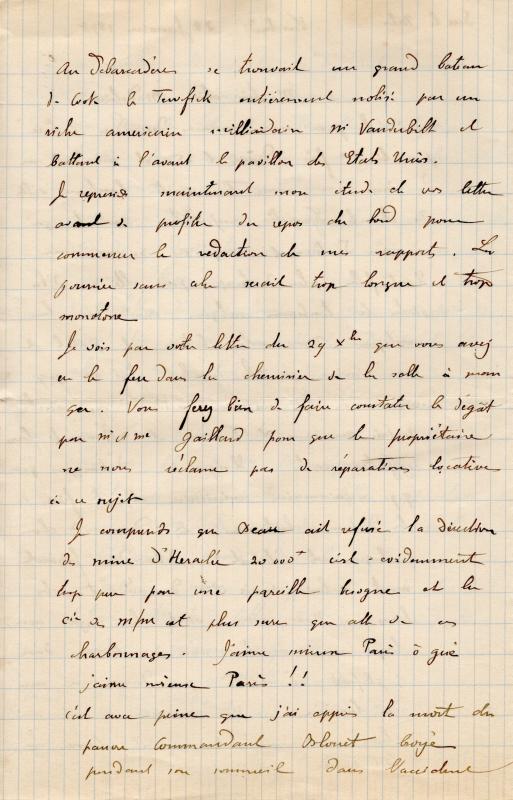 Au Débarcadère se trouvait un grand bateau
de Cook le Tewfick entièrement nolisé par un
riche americain milliardaire Mr Vanderbilt et
battant à l'avant le pavillon des Etats Unis.
Je reprends maintenant mon étude de vos lettres
avant de profiter du repos du bord pour
commencer la rédaction de mes rapports. La
journée sans cela serait trop longue et trop
monotone
Je vois par votre lettre du 29 Xbre que vous avez
eu le feu dans la cheminée de la salle à man
ger. Vous ferez bien de faire constater le dégât
par M et Me Gaillard pour que le propriétaire
ne nous réclame pas de réparations locative
à ce sujet
Je comprends que ait refusé la direction
des mines d'Heraclée 20 000 c'est évidemment
trop peu pour une pareille besogne et la
Cie des est plus sure que celle de ces
charbonnages. J'aime mieux Paris ô gué
j'aime mieux Paris !!
C'est avec peine que j'ai appris la mort du
pauvre Commandant broyé
pendant son sommeil dans l'accident